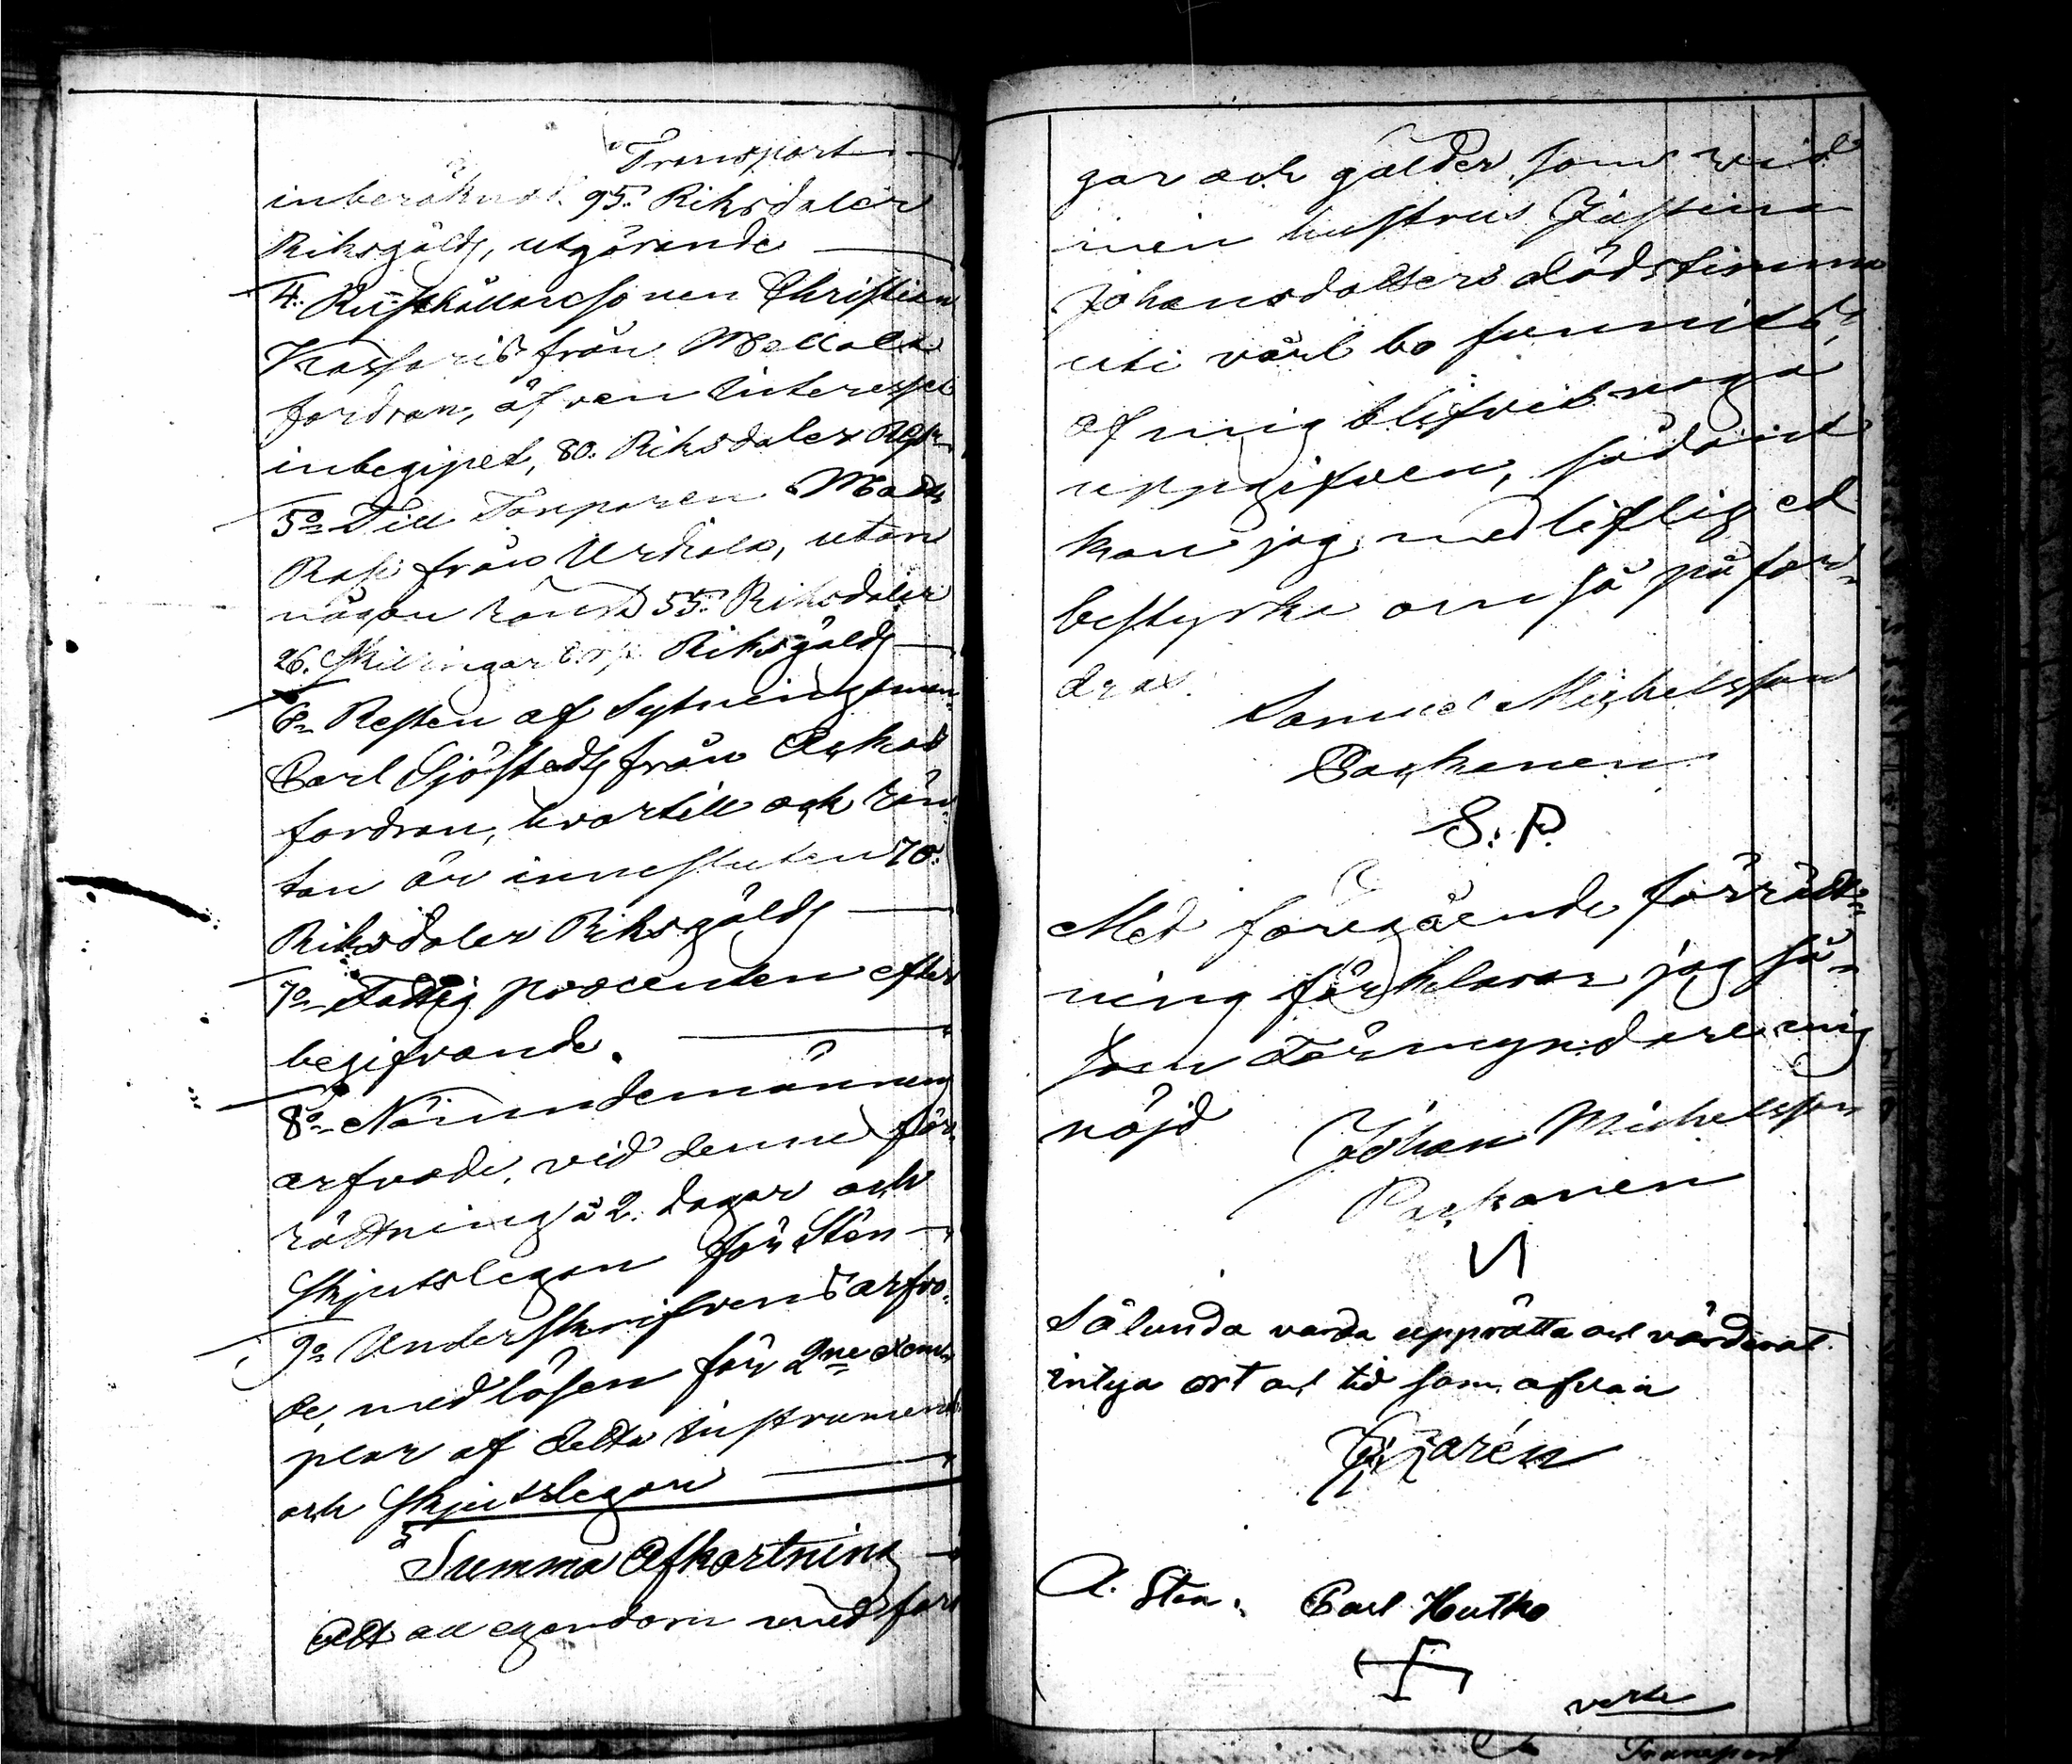 Transport
inberäknad 95. Riksdaler
Riksgälds, utgörande
4. Rusthållaresonen Christian
från Mellola
fordran, äfven interesset
inbegipet, 80. Riksdaler Rgs
5o Till Torparen Matts
Rasi från Urdiala, utan
någon ränta 55. Riksdaler
26. Skillingar Riksgälds
6o Resten af Sytningsman
Carl Sjöstedts från
fordran, hvartill och rän-
tan är innesluten 70.
Riksdaler Riksgälds
7o Fattig procenten efter
begifvande.
8o Nämndemännens
arfvode, vid denne för-
rättning à 2. dagar och
Skjutslegan för Sten
9o Underskrifvens arfvo-
de, med lösen för 2ne exem-
plar af detta instrument
och Skjutslegan
Summa Afkortning
Att all egendom med for
gar och gälder som vid
min hustrus Justina
Johansdotters dödstimma
uti vårt bo funnits,
af mig blifvit noga
uppgifven, sådant
kan jag med liflig ed
bestyrka om så på for-
dras.
Samuel Michelsson
Packanen
S. P.
Med föregående förrätt-
ning förklarar jag så-
som Förmyndare mig
nöjd
Johan Michelsson
Packanen
Sålunda varda upprätta och värderat
intyga ort och tid som ofvan
A. Sten. Carl Hutko
verte
Transport